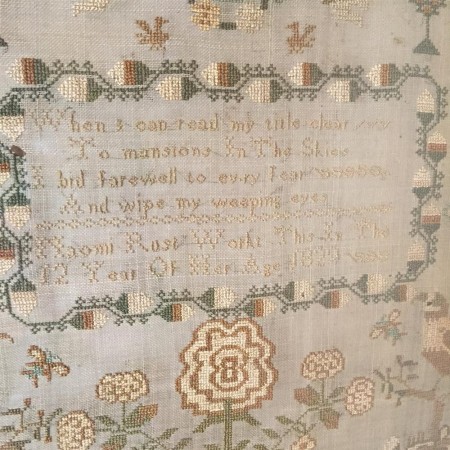 When I can read my title clear
To mansions In The Skies
I bid farewell to evry Fear
And wipe my weeping eyes
Naomi Rust Works This In The
12 Year Of Her Age